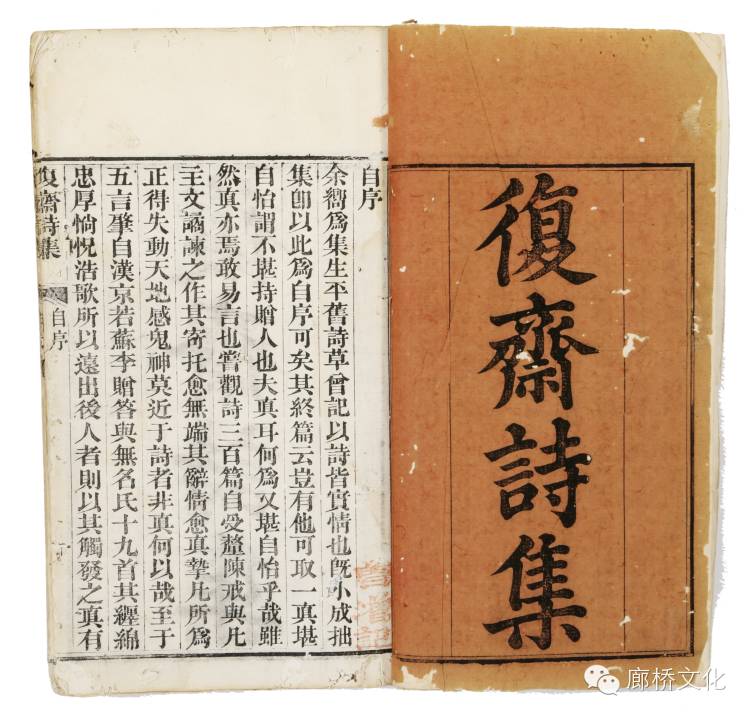 復齋詩集
自序
余嚮爲集生平舊詩草曾記以詩皆實情也旣小成拙
集卽以此爲自序可矣其終篇云豈有他可取一眞堪
自怡謂不堪持贈人也夫眞耳何爲又堪自怡乎哉雖
然眞亦焉敢易言也嘗觀詩三百篇自受釐陳戒與凡
主文譎諫之作其寄托愈無端其辭情愈眞摯凡所爲
正得失動天地感鬼神莫近于詩者非眞何以哉至于
五言肇自漢京若蘇李贈答與無名氏十九首其纒綿
忠厚惝怳浩歌所以遠出後人者則以其觸發之眞有
復齋詩集 自序 一
廊桥文化